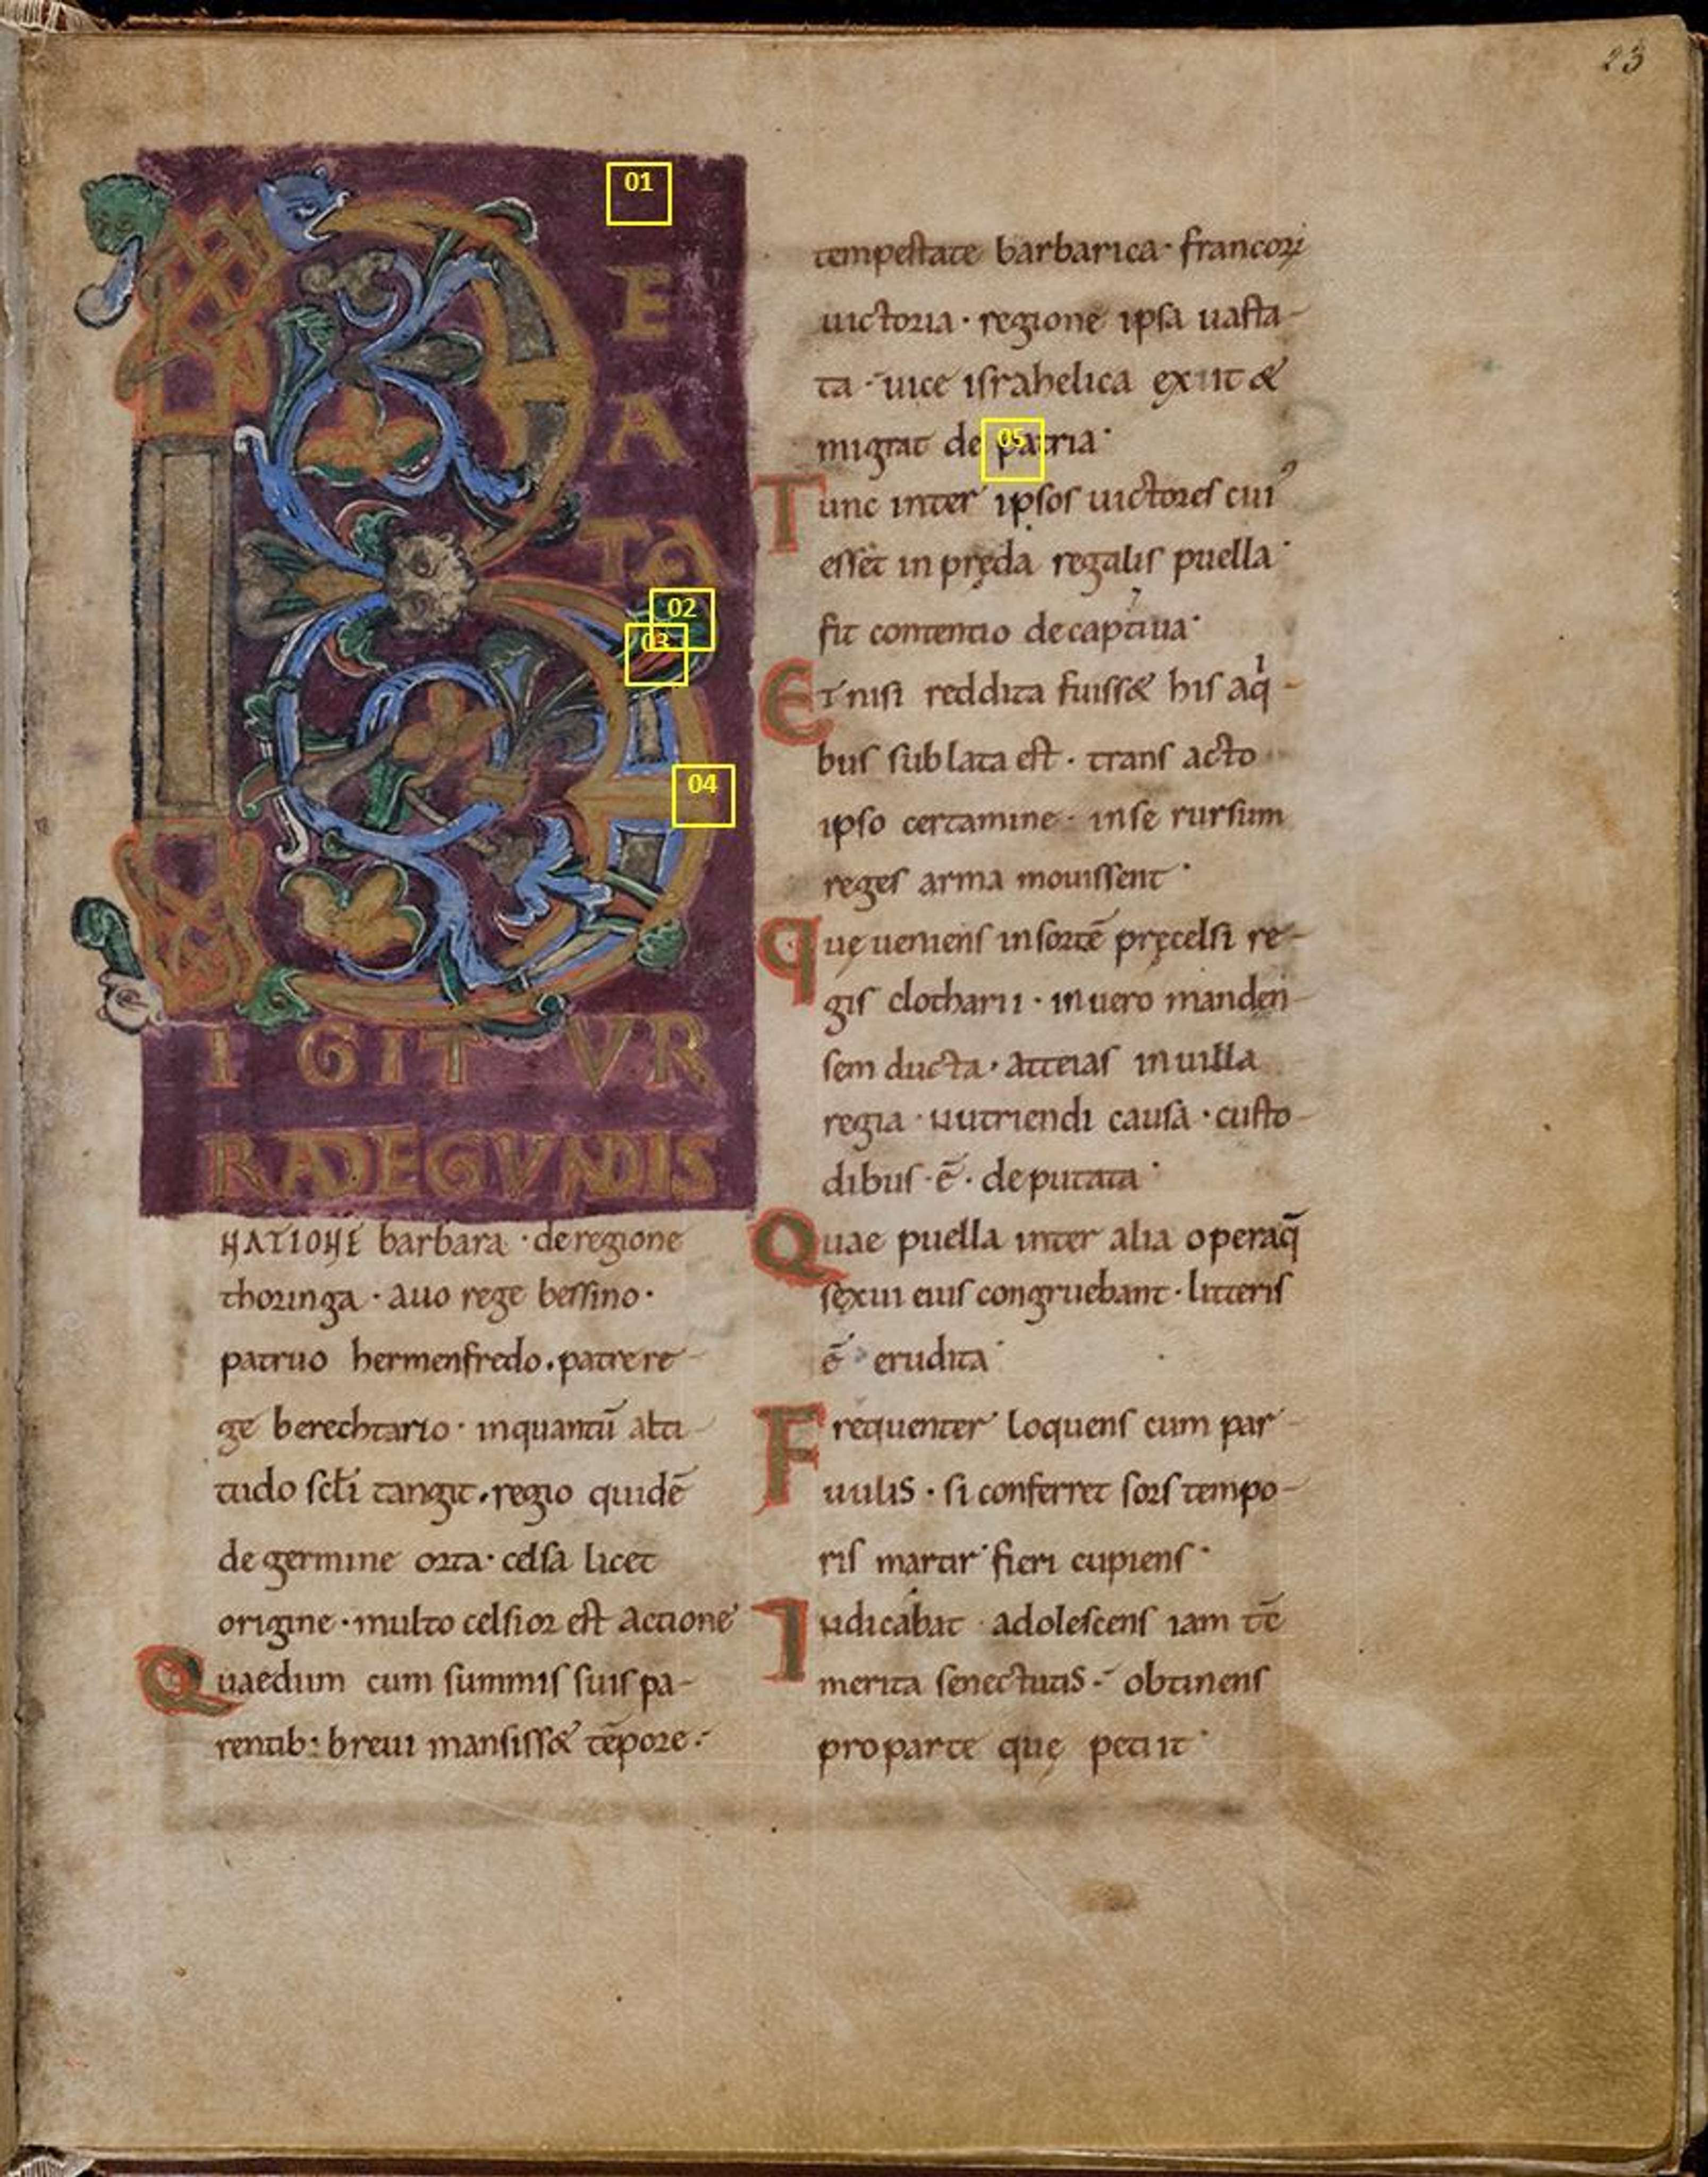 23
01
B
E
A
TA
02
03
04
IGITUR
RADEGUNDIS
NATIONE barbara · de regione
thoringa · auo rege bessino ·
patruo hermenfredo . patre re-
ge berechtario · inquantū alti-
tudo scłi tangit . regio quidē
de germine orta · celsa licet
origine · multo celsior est actione
Quaedum cum summis suis pa-
rentib: breui mansiss& tēpore ·
tempestate barbarica · francorꝝ
uictoria · regione ipsa uasta-
ta · uice israhelica exiit &
migrat de patria ·
05
Tunc inter ipsos uictores cuiꝰ
esset in pręda regalis puella ·
fit contentio de captiua ·
ET nisi reddita fuiss& his aq̍-
bus sublata est · trans acto
ipso certamine · inse rursum
reges arma mouissent ·
quę ueniens insortē pręcelsi re-
gis clotharii · inuero manden-
sem ducta · atteias inuilla
regia · nutriendi causa · custo-
dibus · ē · deputata ·
Quae puella inter alia opera q̄
sęxui eius congruebant · litteris
ē erudita ·
Frequenter loquens cum par-
uulis · si conferret sors tempo-
ris martir fieri cupiens ·
Iudicabat adolescens iam tē
merita senectutis · obtinens
pro parte quę petiit ·